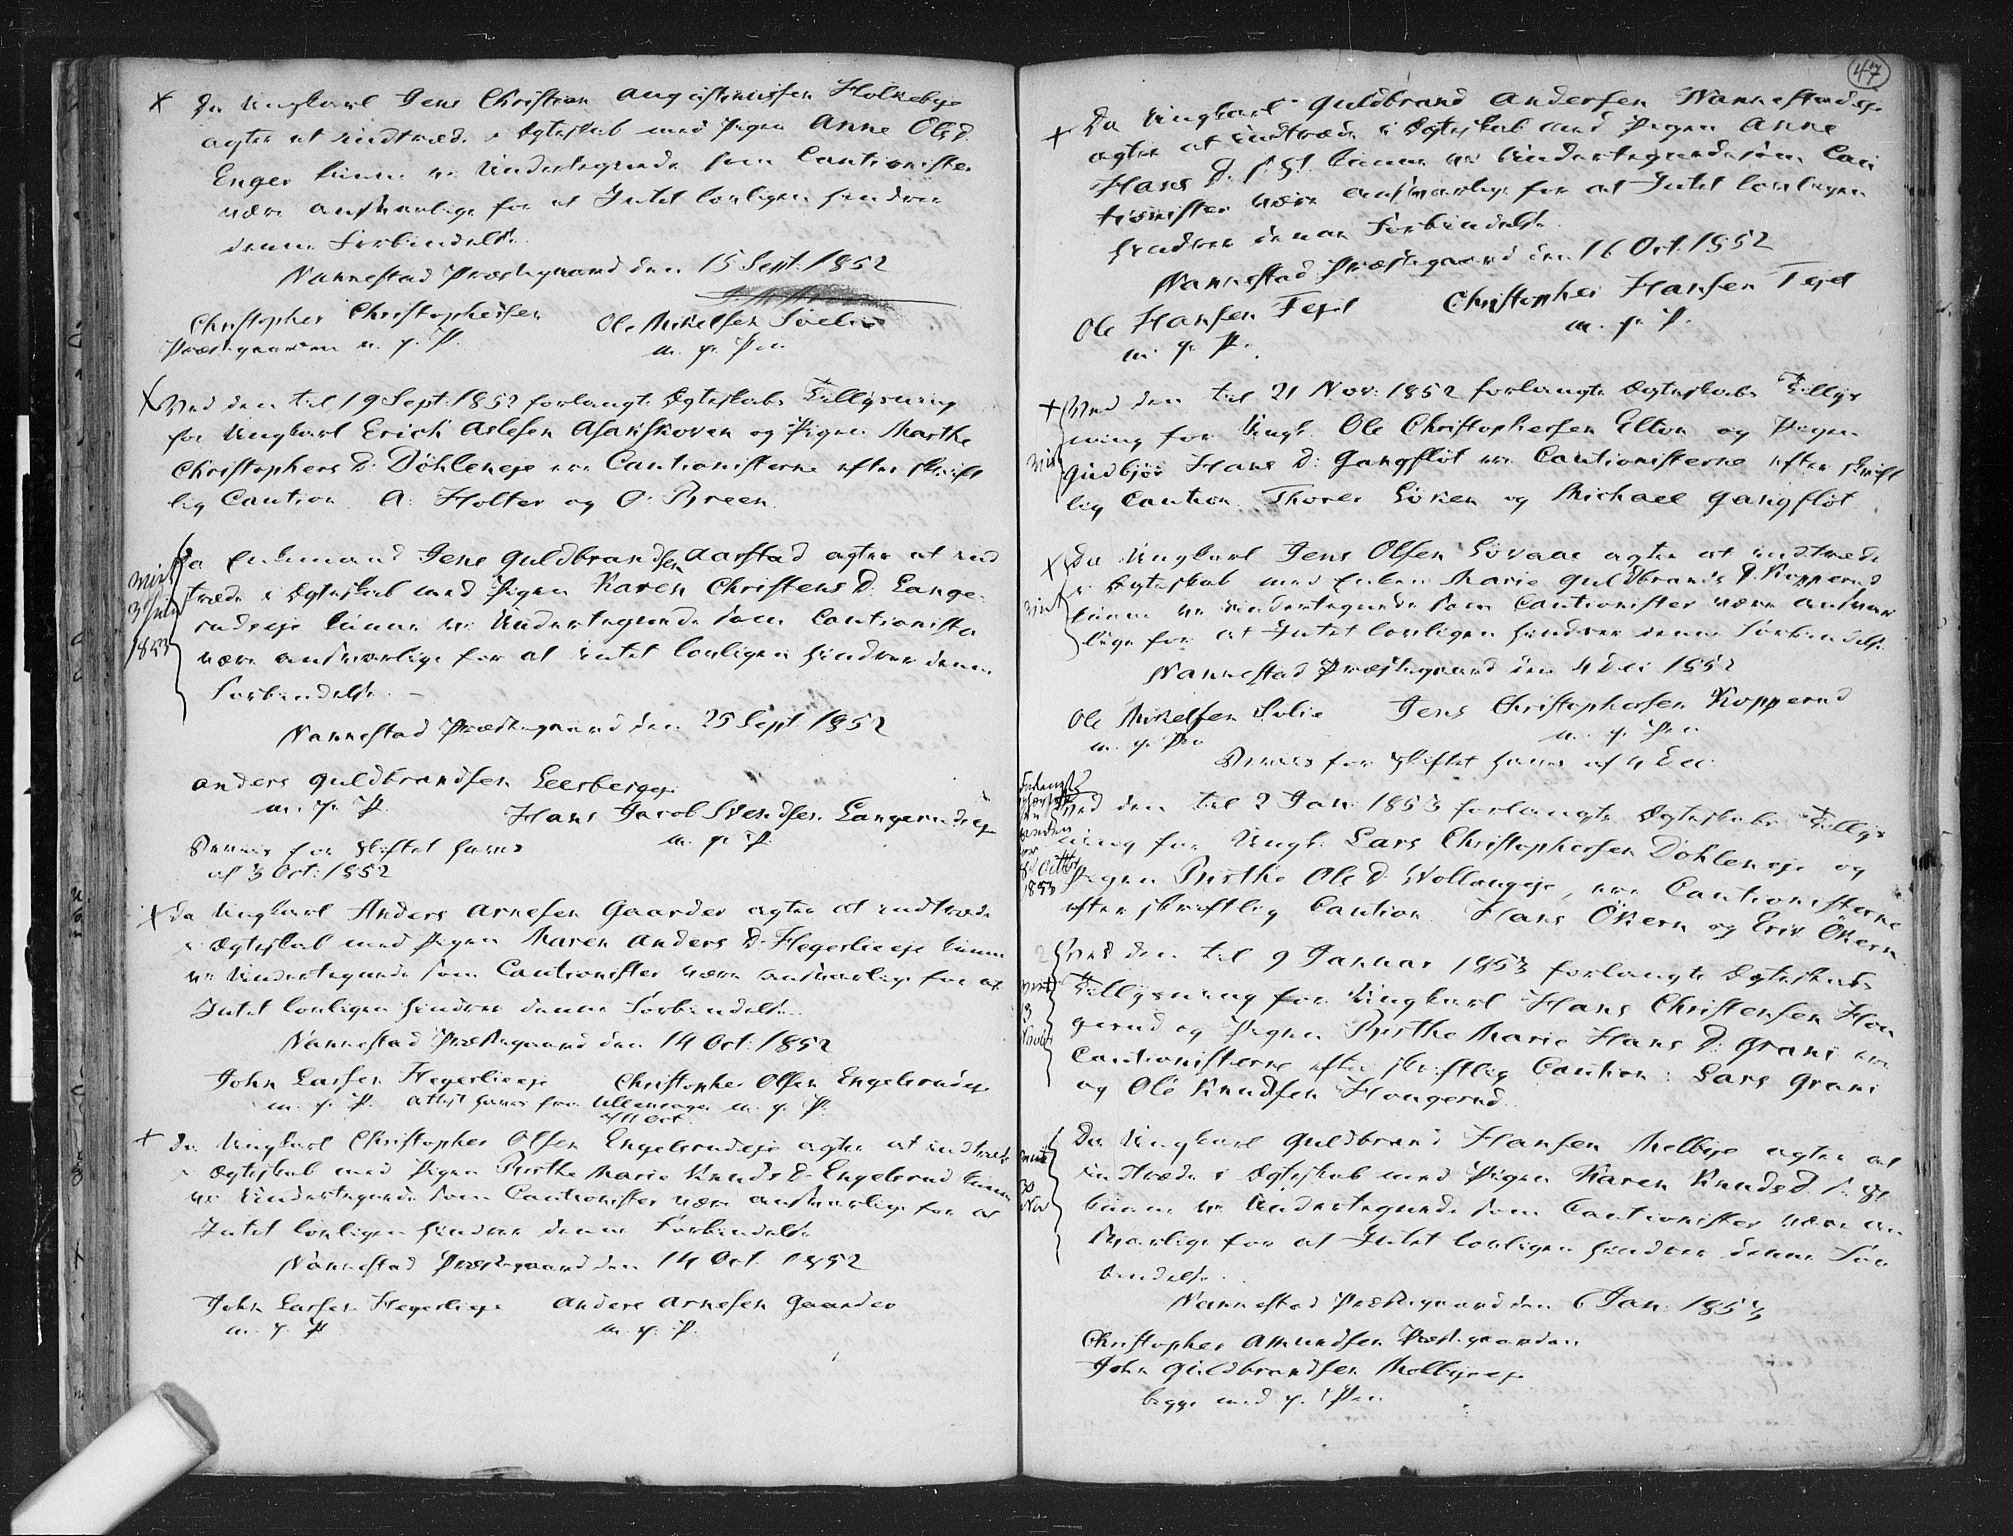 x Da Ungkarl Jens Christian Augustinussen Holkebye
agter at indtræde i Ægteskab med Pigen Anne Ols D.
Enger kunne vi Undertegnede som Cautionister
være ansvarlige for at Intet lovligen hindrer
denne Forbindelse.
Nannestad Præstegaard den 15 Sept. 1852
Christopher Christophersen
Ole Mikelsen
Præstegaarden m. p. P.
m. p. Pen
x Ved den til 19 Sept. 1852 forlangte Ægteskabs Tillysning
for Ungkarl Erich Aslesen Asakskoven og Pigen Marthe
Christophers D. Döhleneje ere Cautionisterne efter skrift
lig Caution A. Holter og O. Breen.
Da Enkemand Jens Guldbrandsen Aarstad agter at ind
viet
3 Juli
1853
træde i Ægteskab med Pigen Karen Christens D. Lange
rudseje kunne vi Undertegnede som Cautionister
være ansvarlige for at intet lovligen hindrer denne
Forbindelse. –
Nannestad Præstegaard den 25 Sept. 1852
Anders Guldbrandsen
m. p. P.
Hans Jacob Svendsen Langerudseje
m. p. P.
Beviis for Skiftet haves
af 3 Oct. 1852
x Da Ungkarl Anders Arnesen Gaarder agter at indtræde
i Ægteskab med Pigen Maren Anders D. Hegerlieeje kunne
vi Undertegnede som Cautionister være ansvarlige for at
Intet lovligen hindrer denne Forbindelse.
Nannestad Præstegaard den 14 Oct. 1852
John Larsen Hegerlieeje
Christopher Olsen Engelsrudeje
m. p. P. Attest haves fra Ullensager m. p. P.
af 11 Oct.
x Da Ungkarl Christopher Olsen Engelsrudeje agter at indtræde
i Ægteskab med Pigen Birthe Marie Knuds D. Engelsrud kunne
vi Undertegnede som Cautionister være ansvarlige for at
Intet lovligen hindrer denne Forbindelse
Nannestad Præstegaard den 14 Oct. 1852
John Larsen Hegerlieeje
Anders Arnesen Gaarder
m. p. P
m. p. P.
47
x Da Ungkarl Guldbrand Andersen Nannestadeje
agter at indtræde i Ægteskab med Pigen Anne
Hans D. s. St. kunne vi Undertegnede som Cau
tionister være ansvarlige for at Intet lovligen
hindrer denne Forbindelse.
Nannestad Præstegaard den 16 Oct. 1852
Ole Hansen Tejel
Christopher Hansen Tejel
m. p. P.
m. p. P.
x Ved den til 21 Nov. 1852 forlangte Ægteskabs Tillys
ning for Ungk. Ole Christophersen Elton og Pigen
viet
Gudbjör Hans D. Gangflöt ere Cautionisterne efter skrift
lig Caution Thorer Löken og Michael Gangflöt
x Da Ungkarl Jens Olsen Lövaas agter at indtræde
i Ægteskab med Enken Marie Guldbrands D. Kopperud
viet
kunne vi Undertegnede som Cautionister være ansvar
lige for at Intet lovligen hindrer denne Forbindelse.
Nannestad Præstegaard den 4 Dec 1852
Ole Mikelsen
Jens Christophersen Kopperud
m. p. Pen
m. p. Pen
Beviis for Skiftet haves af 4 Dec.
Ved den til 2 Jan. 1853 forlangte Ægteskabs Tillys
ning for Ungk. Lars Christophersen Döhleneje og
8 Octbr
1853
Pigen Birthe Ole D. Wollaugeje, ere Cautionisterne
efter skriftlig Caution Hans Ökern og Eric Ökern
Ved den til 9 Januar 1853 forlangte Ægteskabs
viet
3
Tillysning for Ungkarl Hans Christensen Hon
gerud og Pigen Birthe Marie Hans D. Grani ere
Cautionisterne efter skriftlig Caution: Lars Grani
og Ole Knudsen Hongerud.
Da Ungkarl Guldbrand Hansen Melbye agter at
viet
30
Nov
indtræde i Ægteskab med Pigen Karen Knuds D. s. St
kunne vi Undertegnede som Cautionister være an
svarlige for at Intet lovligen hindrer denne For
bindelse.
Nannestad Præstegaard den 6 Jan. 1853
Christopher Amundsen Præstegaarden
John Guldbrandsen Melbyeeje
begge med p. Pen